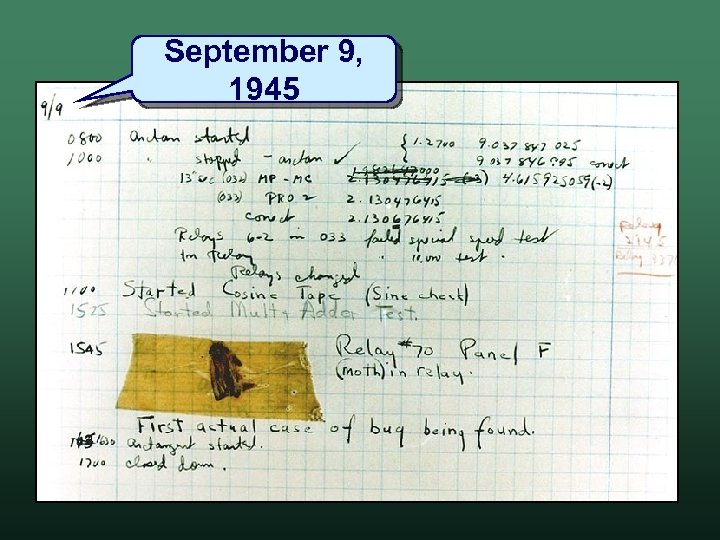 September 9,
1945
9/9
0800 arctan started
1000 " stopped - arctan ✓
{ 1.2700 9.037 847 025
9.037 846 995 correct
13" sec (032) MP - MC 2.130476415 4.615925059(-2)
(033) PRO 2 2.130476415
correct 2.130676415
Relays 6-2 in 033 failed special speed test
in Relay " 10.000 test .
Relay
2145
Relay 337
Relays changed
1100 Started Cosine Tape (Sine check)
1525 Started Mult + Adder Test.
1545 Relay #70 Panel F
(moth) in relay.
First actual case of bug being found.
1630 arctangent started.
1700 closed down.